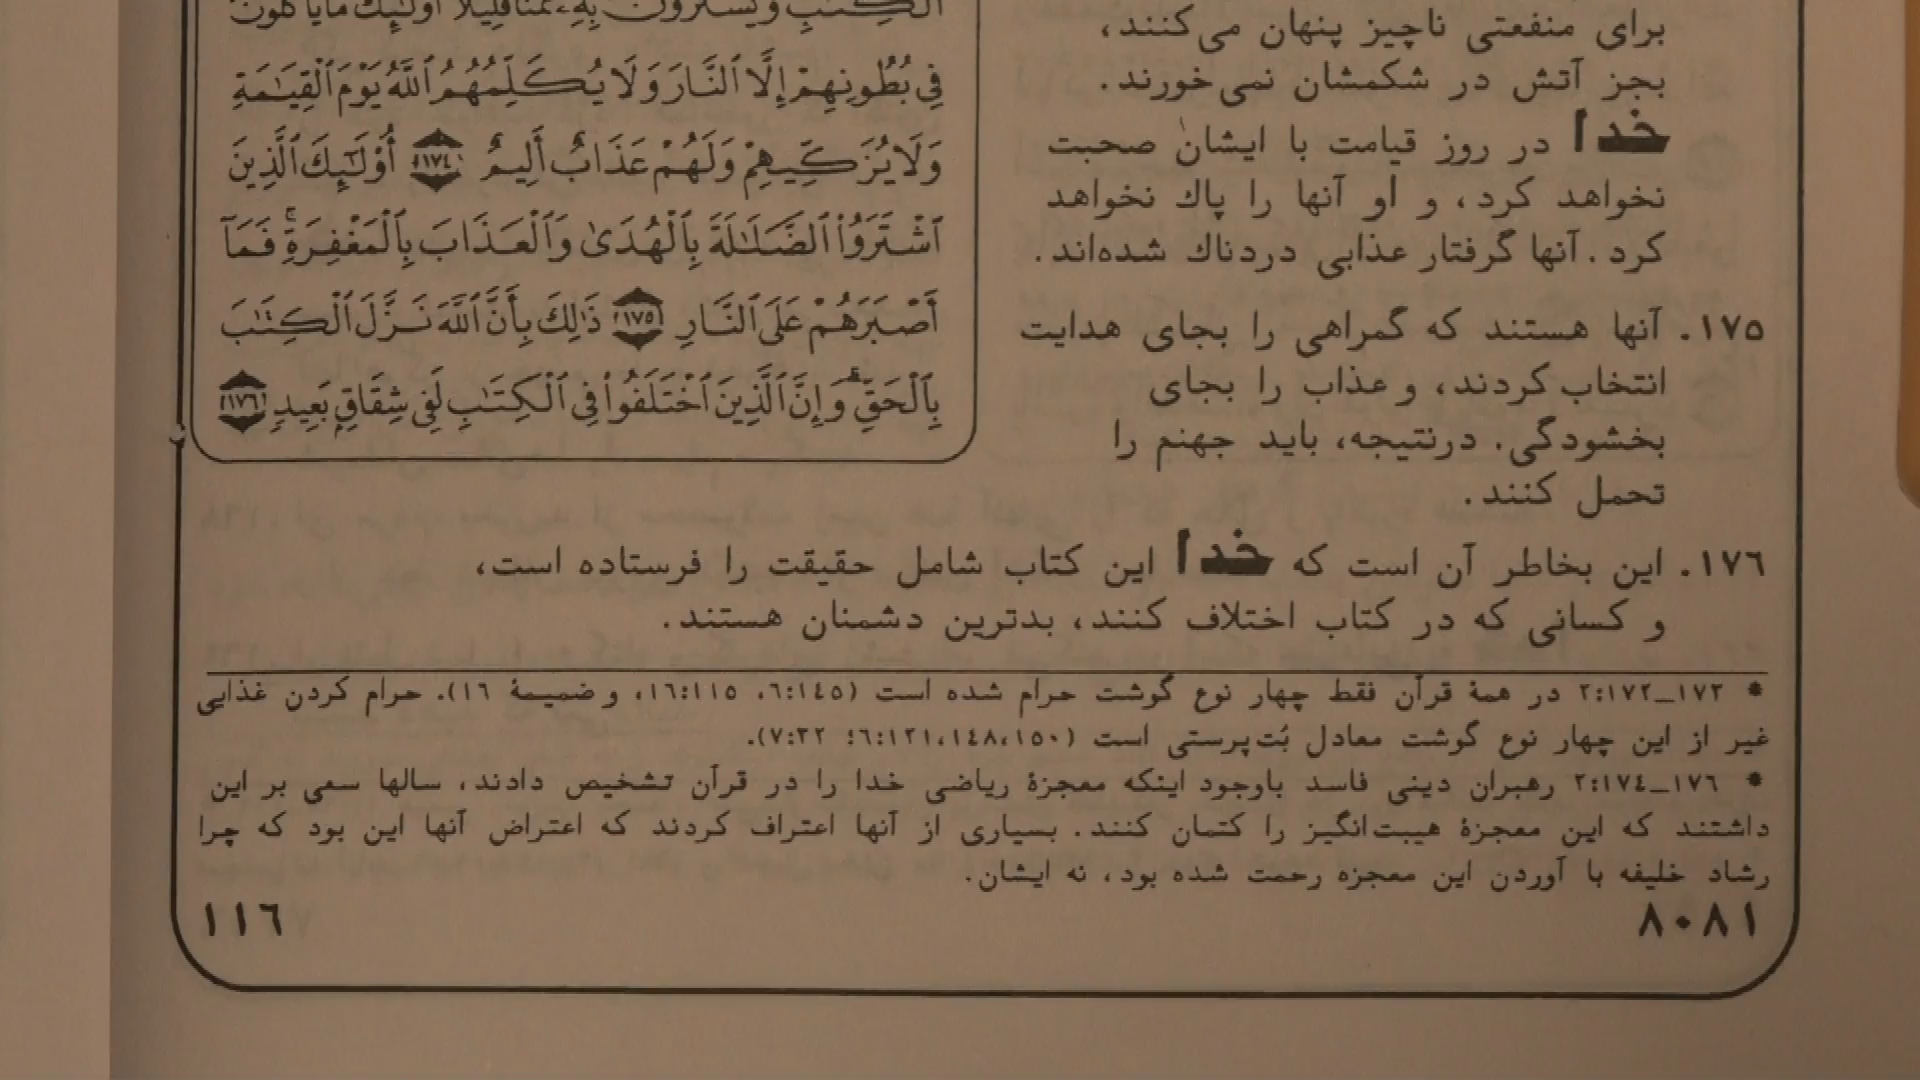 برای منفعتی ناچیز پنهان می‌کنند،
بجز آتش در شکمشان نمی‌خورند.
خدا در روز قیامت با ایشان صحبت
نخواهد کرد، و او آنها را پاك نخواهد
کرد. آنها گرفتار عذابی دردناك شده‌اند.
۱۷۵. آنها هستند که گمراهی را بجای هدایت
انتخاب کردند، و عذاب را بجای
بخشودگی. درنتیجه، باید جهنم را
تحمل کنند.
ٱلْكِتَٰبِ وَيَشْتَرُونَ بِهِۦ ثَمَنًا قَلِيلًا أُو۟لَٰٓئِكَ مَا يَأْكُلُونَ
فِى بُطُونِهِمْ إِلَّا ٱلنَّارَ وَلَا يُكَلِّمُهُمُ ٱللَّهُ يَوْمَ ٱلْقِيَٰمَةِ
وَلَا يُزَكِّيهِمْ وَلَهُمْ عَذَابٌ أَلِيمٌ ١٧٤ أُو۟لَٰٓئِكَ ٱلَّذِينَ
ٱشْتَرَوُا۟ ٱلضَّلَٰلَةَ بِٱلْهُدَىٰ وَٱلْعَذَابَ بِٱلْمَغْفِرَةِ ۚ فَمَآ
أَصْبَرَهُمْ عَلَى ٱلنَّارِ ١٧٥ ذَٰلِكَ بِأَنَّ ٱللَّهَ نَزَّلَ ٱلْكِتَٰبَ
بِٱلْحَقِّ ۗ وَإِنَّ ٱلَّذِينَ ٱخْتَلَفُوا۟ فِى ٱلْكِتَٰبِ لَفِى شِقَاقٍۭ بَعِيدٍ ١٧٦
۱۷٦. این بخاطر آن است که خدا این کتاب شامل حقیقت را فرستاده است،
و کسانی که در کتاب اختلاف کنند، بدترین دشمنان هستند.
* ۱۷۳_۲:۱۷۲ در همهٔ قرآن فقط چهار نوع گوشت حرام شده است (٦:۱٤٥، ۱٦:۱۱٥، و ضمیمهٔ ۱٦). حرام کردن غذایی
غیر از این چهار نوع گوشت معادل بُت‌پرستی است (٦:۱۲۱،۱٤۸،۱٥۰؛ ۷:۳۲).
* ۱۷٦_۲:۱۷٤ رهبران دینی فاسد باوجود اینکه معجزهٔ ریاضی خدا را در قرآن تشخیص دادند، سالها سعی بر این
داشتند که این معجزهٔ هیبت‌انگیز را کتمان کنند. بسیاری از آنها اعتراف کردند که اعتراض آنها این بود که چرا
رشاد خلیفه با آوردن این معجزه رحمت شده بود، نه ایشان.
۸۰۸۱
۱۱٦